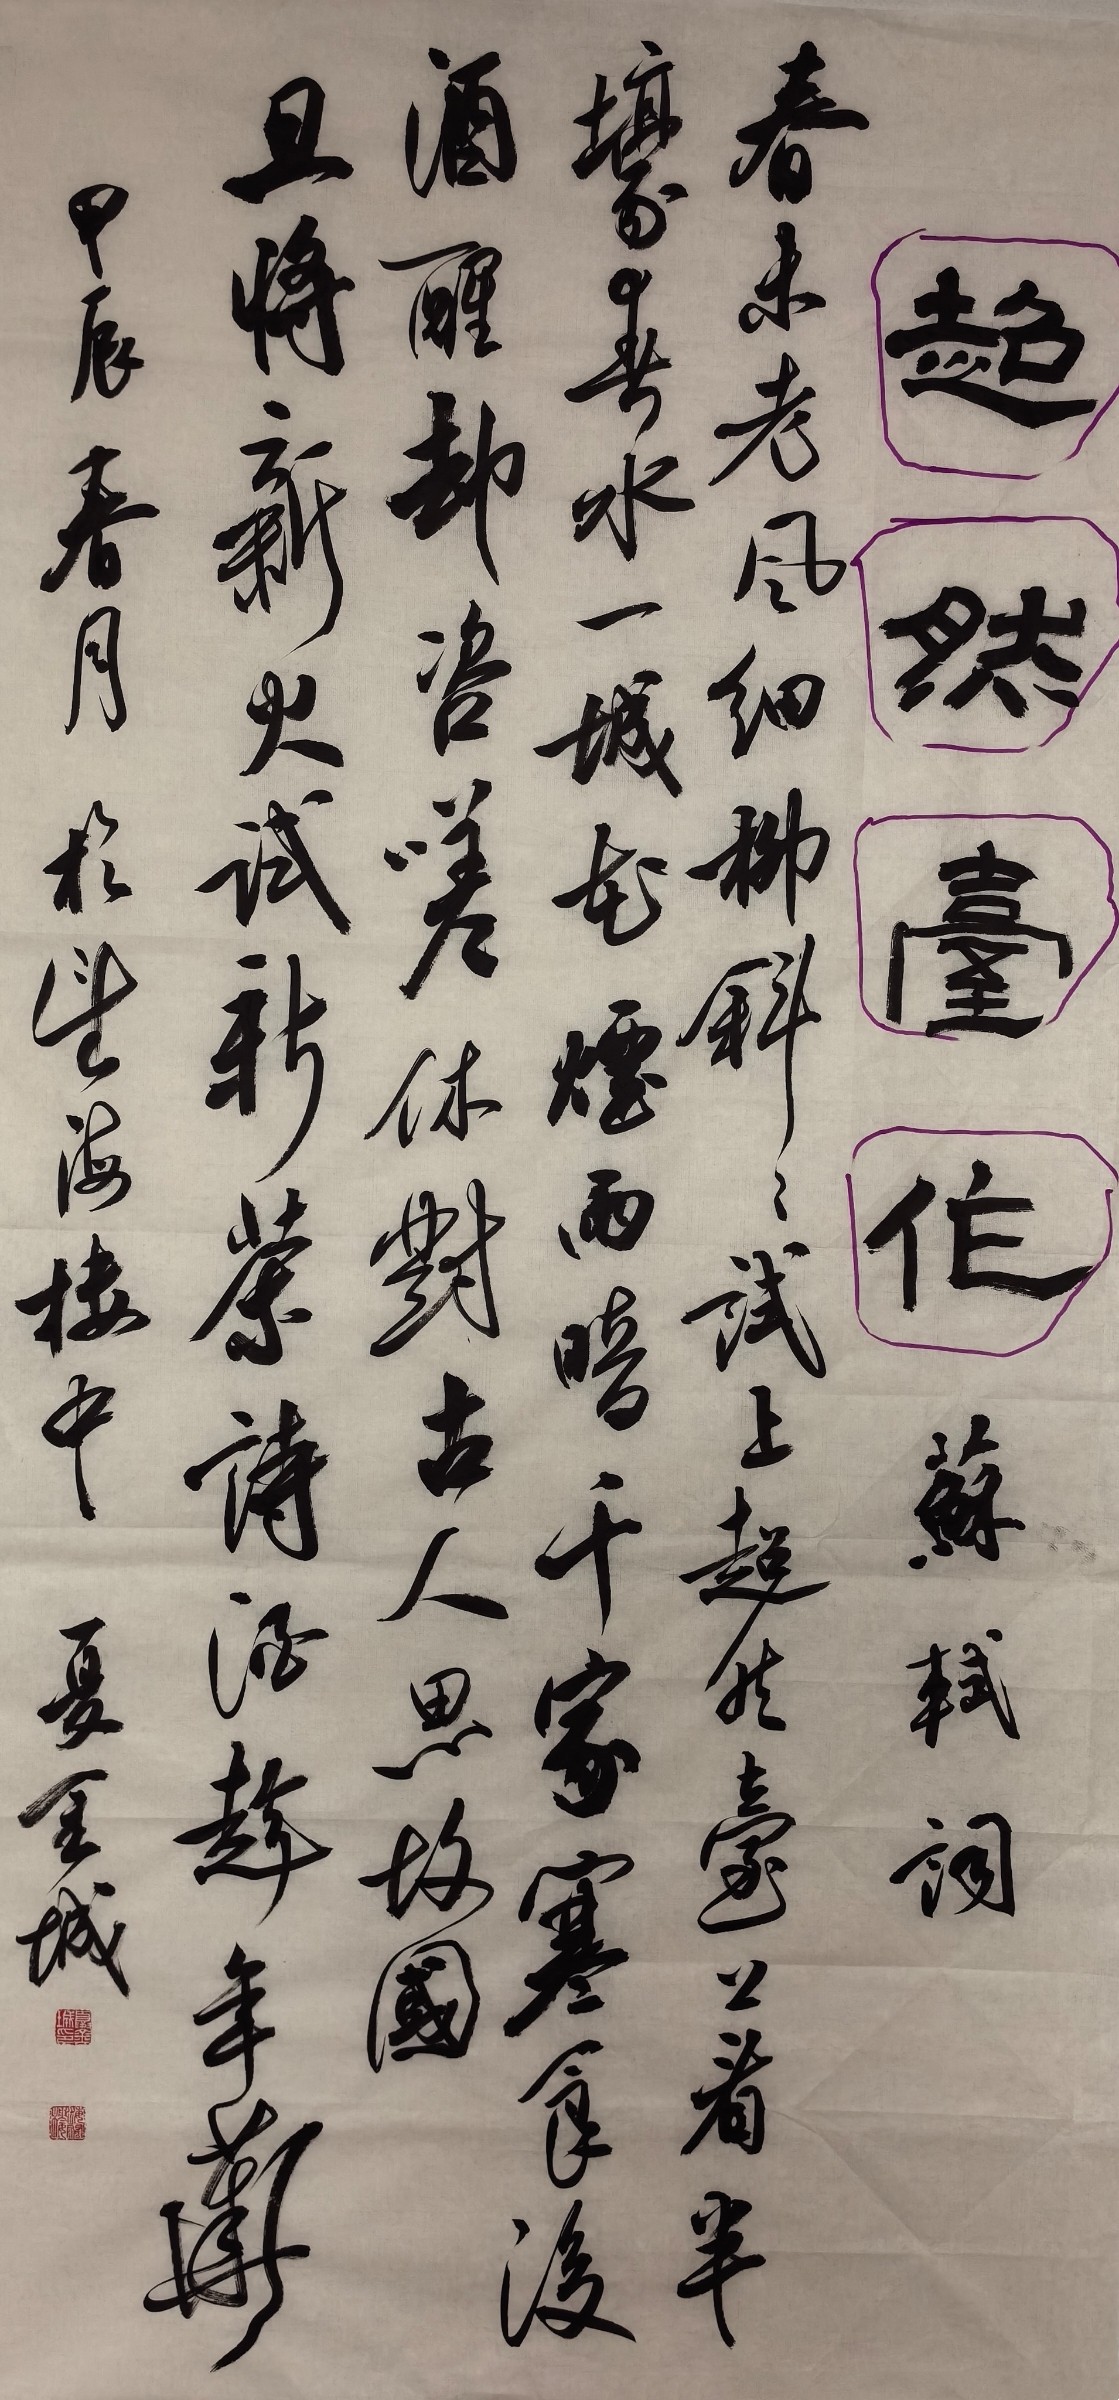 超然臺作 蘇軾詞
春未老風細柳斜〻試上超然臺上看半
壕春水一城花煙雨暗千家寒食後
酒醒却咨嗟休對古人思故國
且將新火試新茶詩酒趁年華
甲辰春月於望海楼中 夏金城